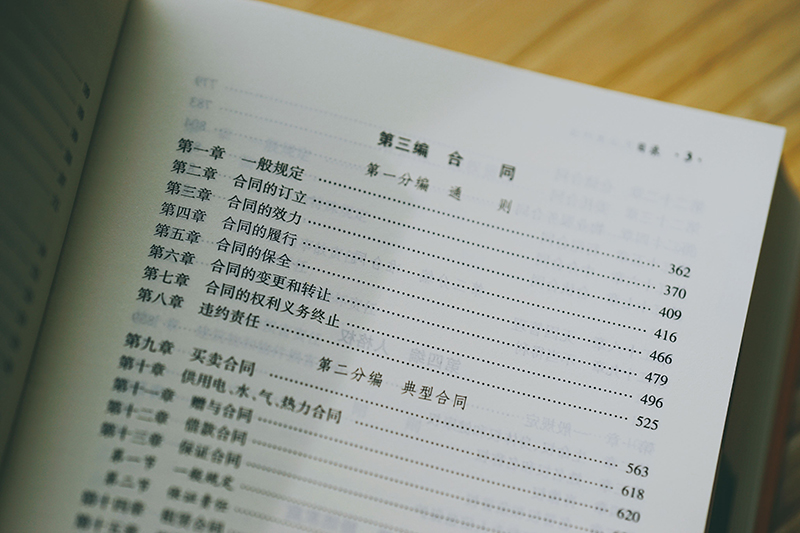 目录 · 3 ·
第三编 合 同
第一分编 通 则
第一章 一般规定 …… 362
第二章 合同的订立 …… 370
第三章 合同的效力 …… 409
第四章 合同的履行 …… 416
第五章 合同的保全 …… 466
第六章 合同的变更和转让 …… 479
第七章 合同的权利义务终止 …… 496
第八章 违约责任 …… 525
第二分编 典型合同
第九章 买卖合同 …… 563
第十章 供用电、水、气、热力合同 …… 618
第十一章 赠与合同 …… 620
第十二章 借款合同
第十三章 保证合同
第一节 一般规定
保证责任
第十四章 租赁合同
第十五章